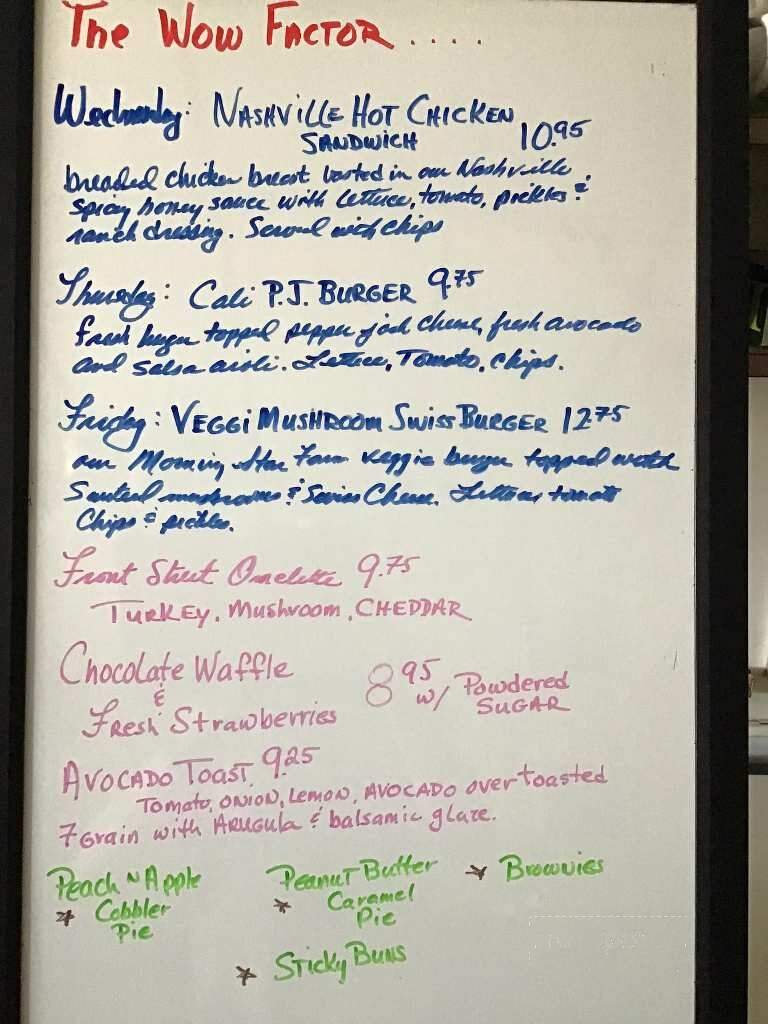 The Wow Factor . . . .
Wednesday: Nashville Hot Chicken
Sandwich 10.95
breaded chicken breast basted in our Nashville
spicy honey sauce with lettuce, tomato, pickles &
ranch dressing. Served with chips
Thursday: Cali P.J. Burger 9.75
fresh burger topped pepper jack cheese, fresh avocado
and salsa aioli. Lettuce, Tomato, Chips.
Friday: Veggi Mushroom Swiss Burger 12.75
our Morning Star Farm veggie burger topped with
Sauteed mushrooms & Swiss Cheese. Lettuce tomato
Chips & pickles.
Front Street Omelette 9.75
Turkey, Mushroom, Cheddar
Chocolate Waffle
& 8.95 w/ Powdered Sugar
Fresh Strawberries
Avocado Toast 9.25
Tomato, Onion, Lemon, Avocado over toasted
7 Grain with Arugula & balsamic glaze.
Peach n Apple
* Cobbler
Pie
Peanut Butter
* Caramel
Pie
* Brownies
* Sticky Buns